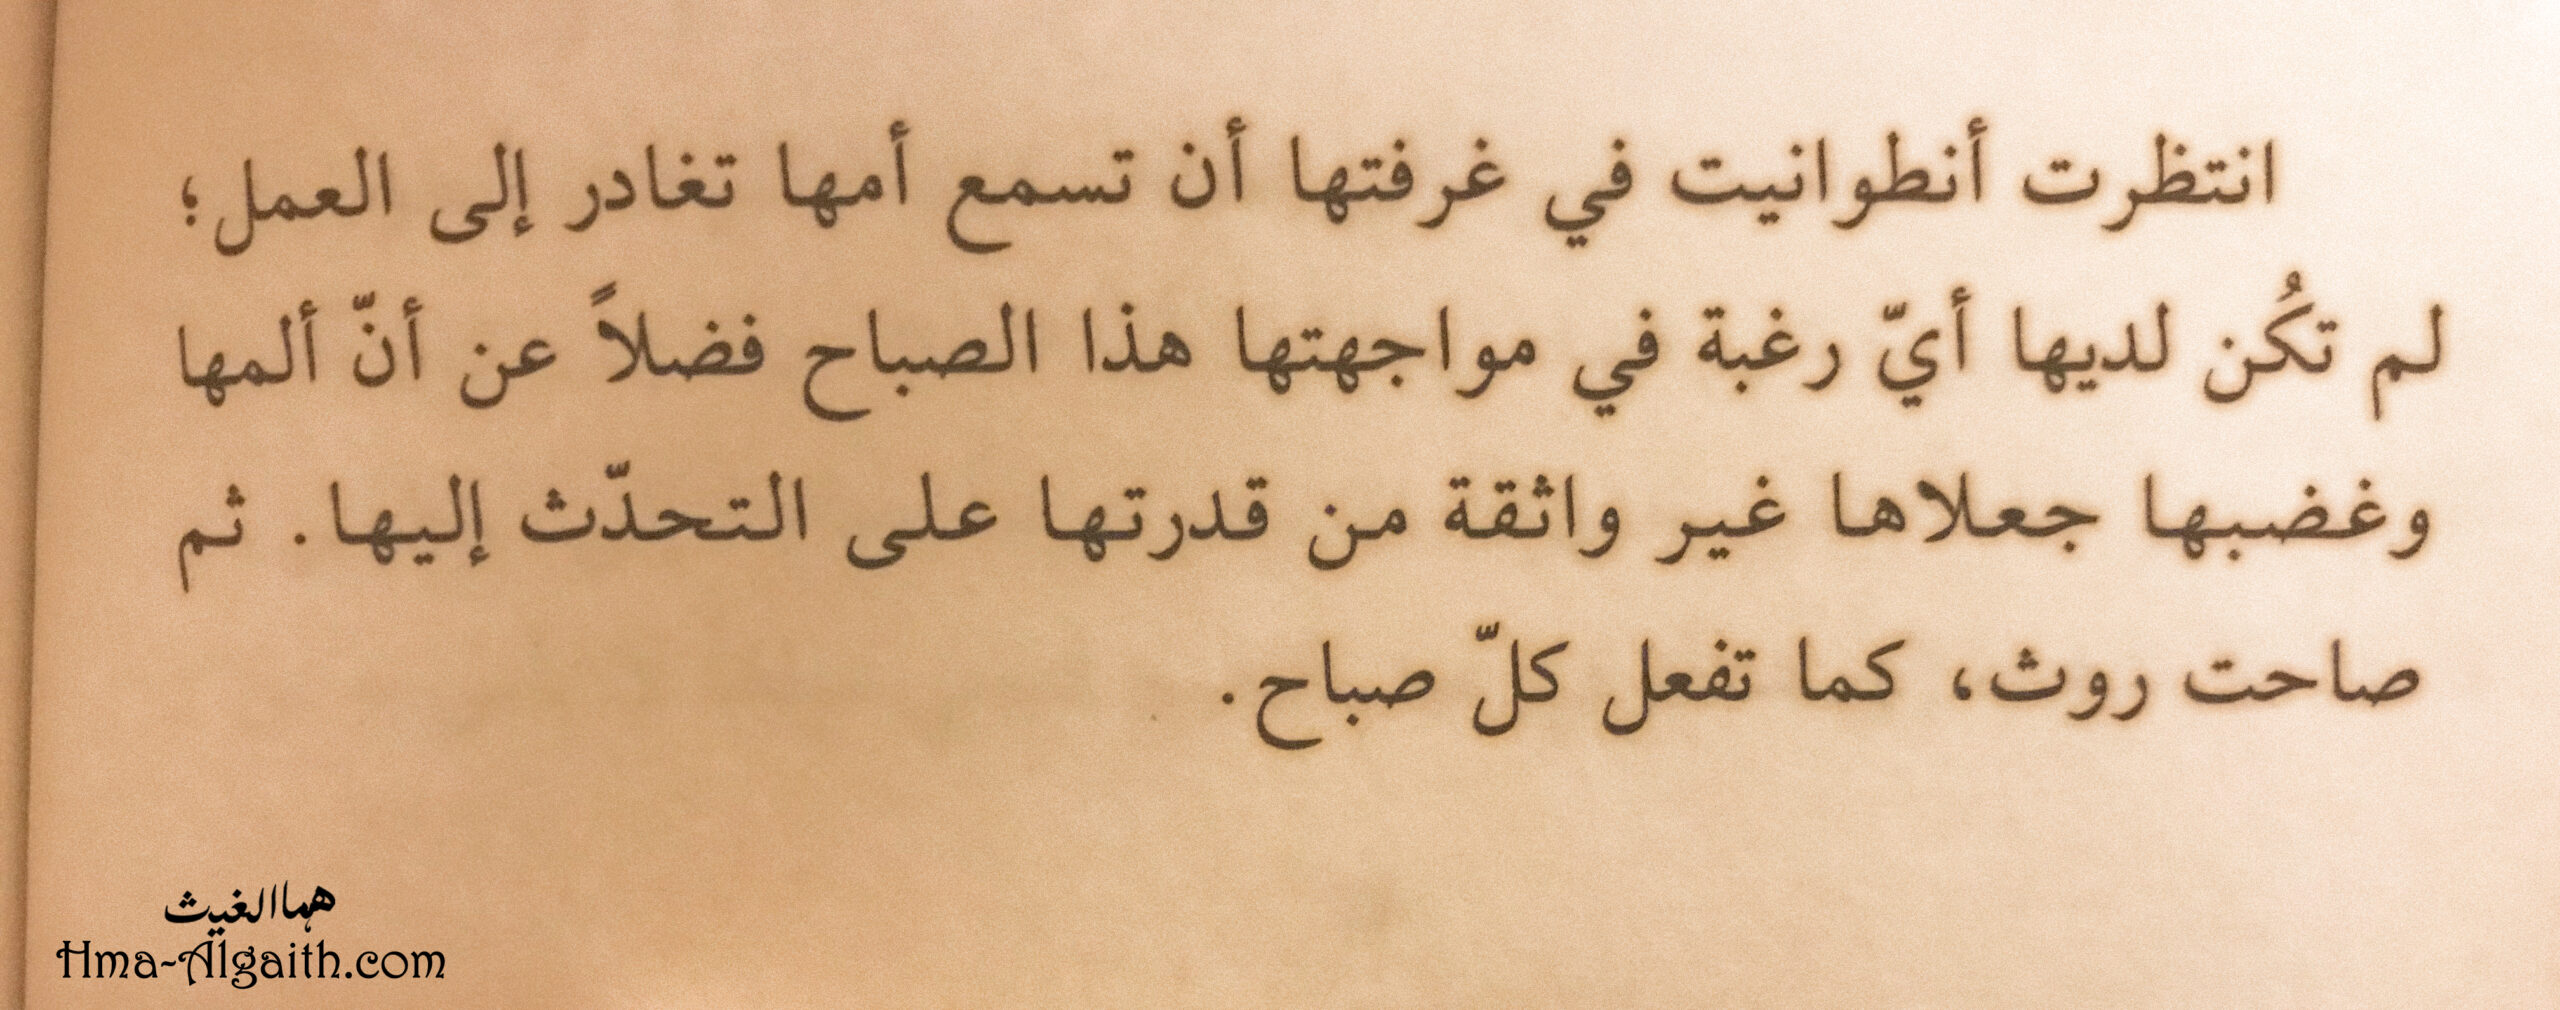 انتظرت أنطوانيت في غرفتها أن تسمع أمها تغادر إلى العمل؛
لم تكُن لديها أيّ رغبة في مواجهتها هذا الصباح فضلاً عن أنّ ألمها
وغضبها جعلاها غير واثقة من قدرتها على التحدّث إليها. ثم
صاحت روث، كما تفعل كلّ صباح.
هما الغيث
Hma-Algaith.com